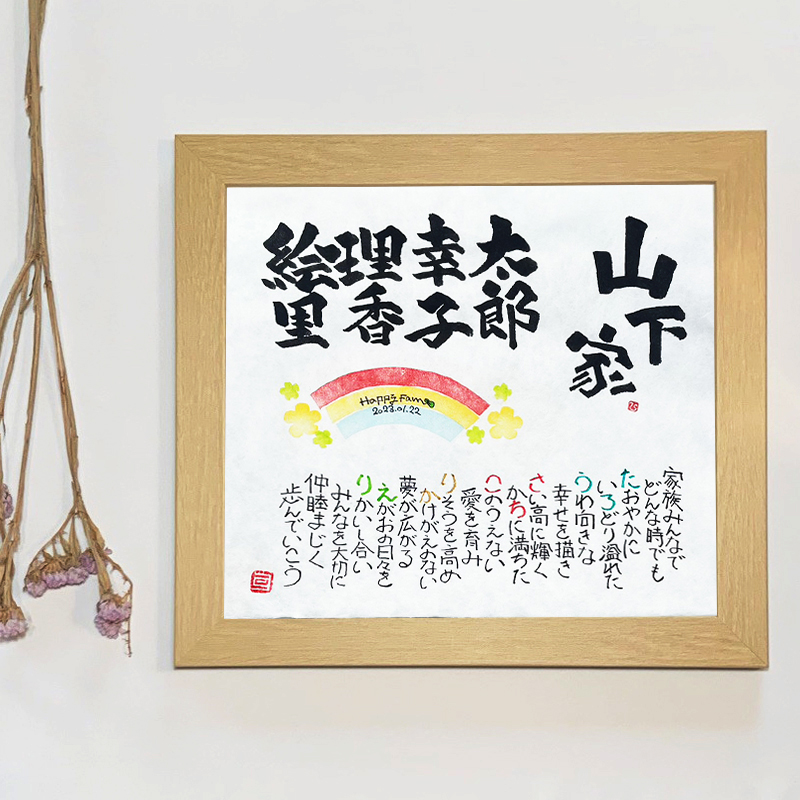 山下家
太郎
幸子
理香
絵里
Happy Fam
2023.01.22
家族みんなで
どんな時でも
たおやかに
いろどり溢れた
うわ向きな
幸せを描き
さい高に輝く
かちに満ちた
このうえない
愛を育み
りそうを高め
かけがえのない
夢が広がる
えがおの日々を
りかいし合い
みんなを大切に
仲睦まじく
歩んでいこう